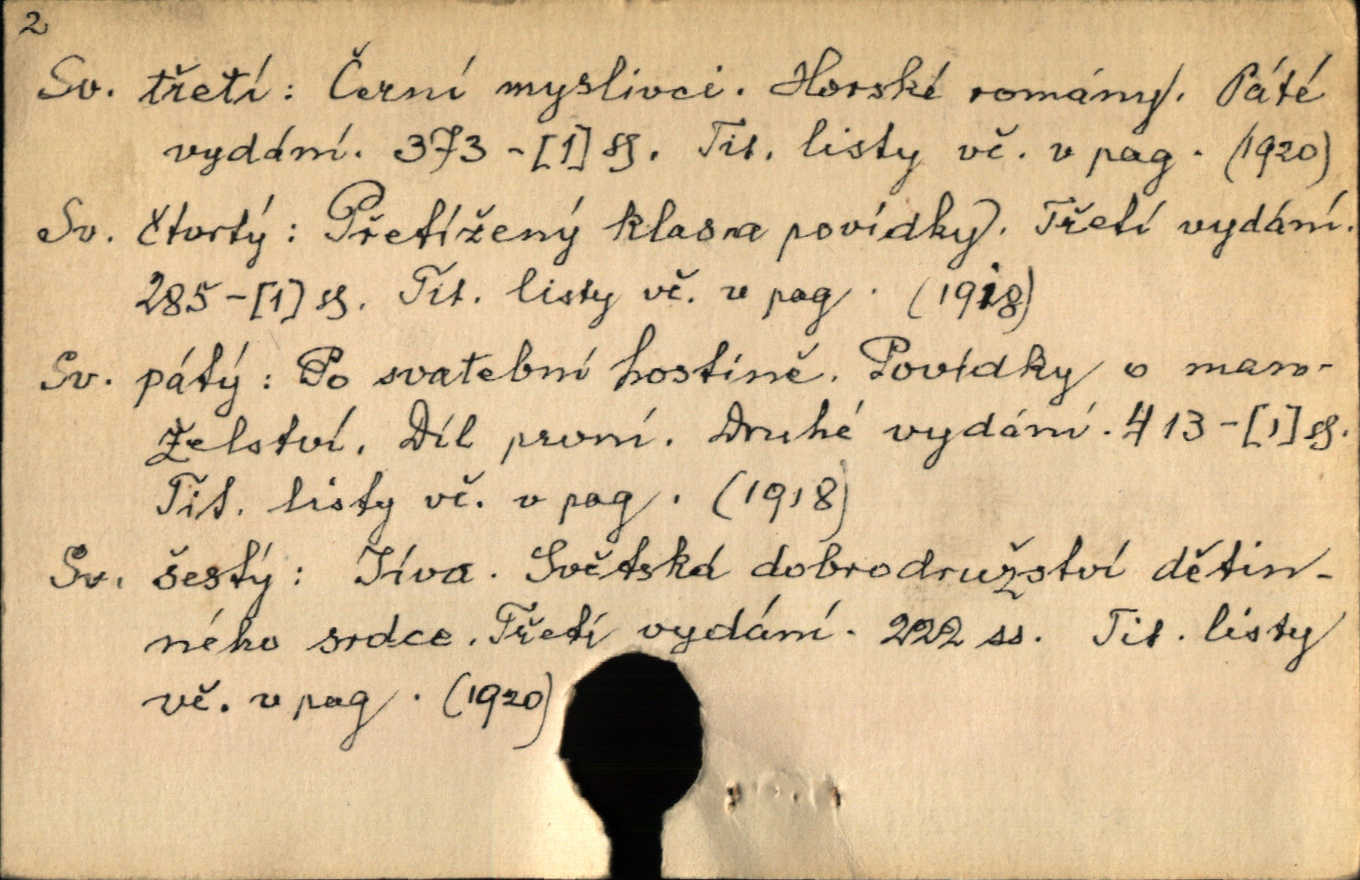 2
Sv. třetí: Černí myslivci. Horské romány. Páté
vydání. 373-[1] ss. Tit. listy vč. v pag. (1920)
Sv. čtvrtý: Přetížený klas a povídky. Třetí vydání.
285-[1] ss. Tit. listy vč. v pag. (1918)
Sv. pátý: Po svatební hostině. Povídky o man-
želství. Díl první. Druhé vydání. 413-[1] ss.
Tit. listy vč. v pag. (1918)
Sv. šestý: Jíva. Světská dobrodružství dětin-
ného srdce. Třetí vydání. 222 ss. Tit. listy
vč. v pag. (1920)